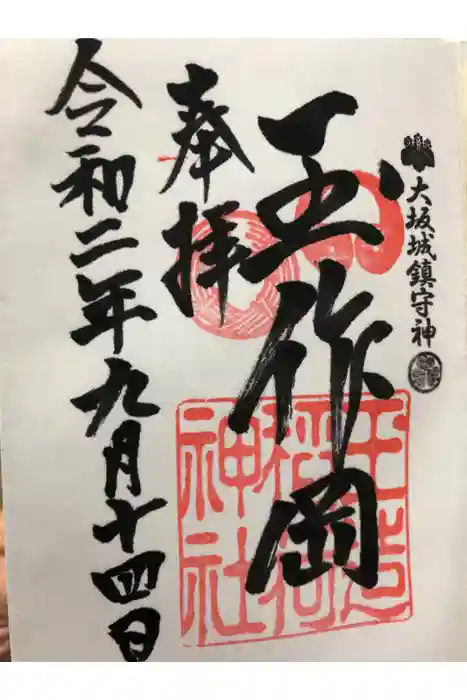 大坂城鎮守神
玉作岡
玉造
稲荷
神社
奉拝
令和二年九月十四日